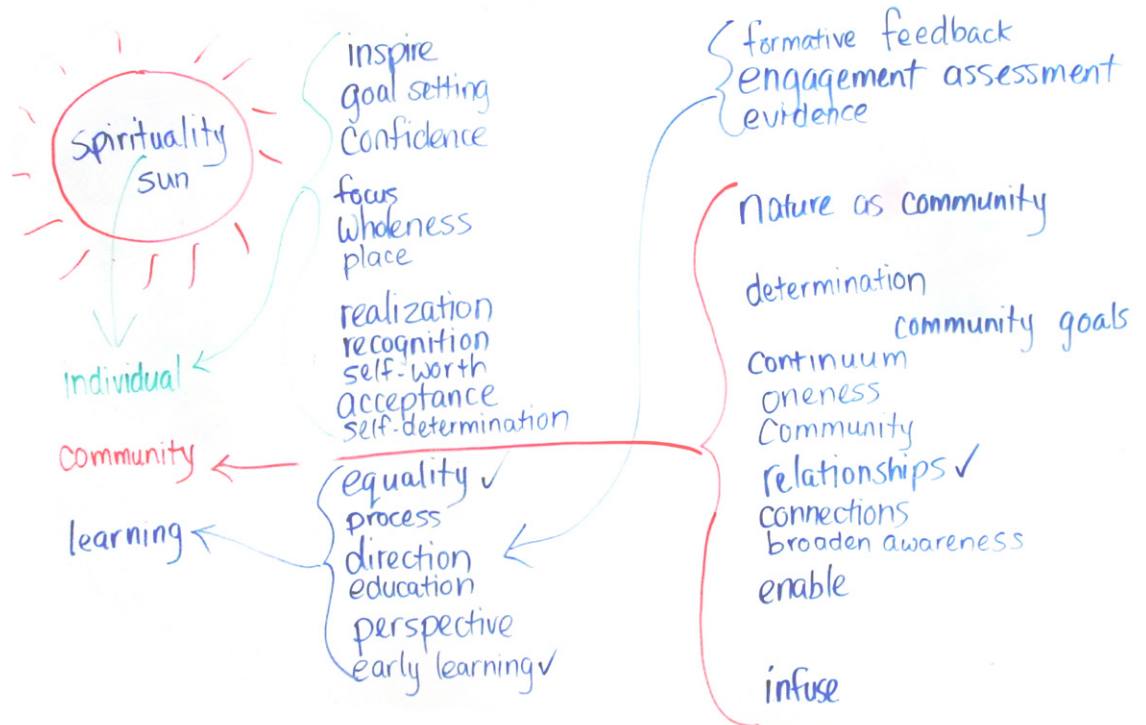 spirituality
sun
individual
community
learning
inspire
goal setting
Confidence
focus
wholeness
place
realization
recognition
self-worth
acceptance
self-determination
equality ✓
process
direction
education
perspective
early learning ✓
formative feedback
engagement assessment
evidence
nature as community
determination
community goals
continuum
oneness
Community
relationships ✓
connections
broaden awareness
enable
infuse